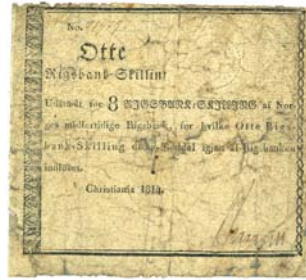 No.
Otte
Rigsbank-Skilling
Udstædt for 8 RIGSBANK-SKILLING af Nor
ges midlertidige Rigsbank, for hvilke Otte Rigs-
bank-Skilling igjen af Rigsbanken
indløses.
Christiania 1814.